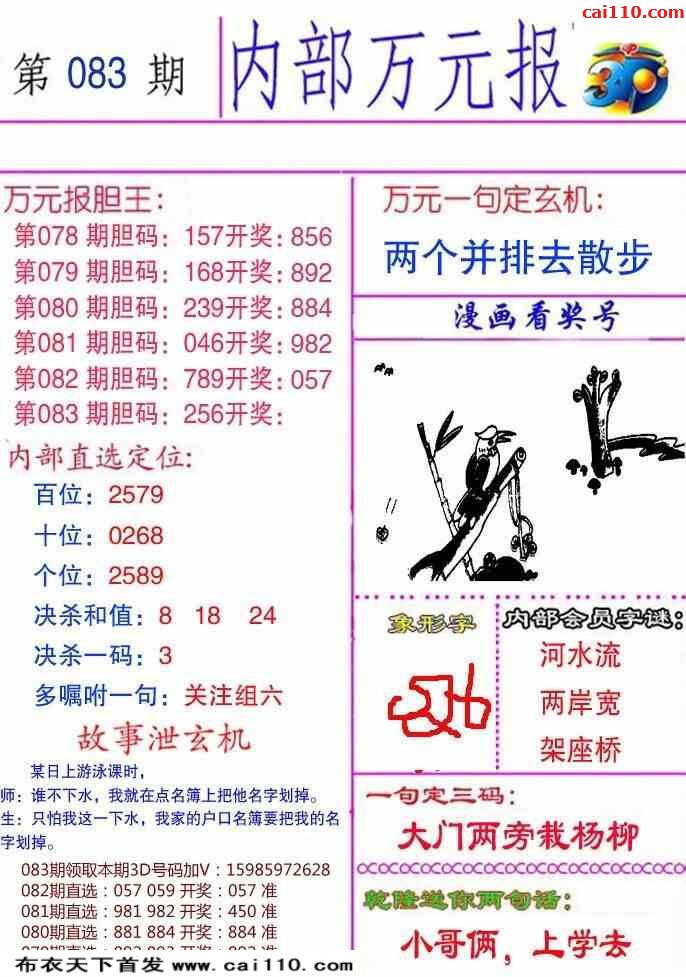 cai110.com
第 083 期
内部万元报
3D
万元报胆王：
第078 期胆码：157开奖：856
第079 期胆码：168开奖：892
第080 期胆码：239开奖：884
第081 期胆码：046开奖：982
第082 期胆码：789开奖：057
第083 期胆码：256开奖：
内部直选定位：
百位：2579
十位：0268
个位：2589
决杀和值：8 18 24
决杀一码：3
多嘱咐一句：关注组六
故事泄玄机
某日上游泳课时，
师：谁不下水，我就在点名簿上把他名字划掉。
生：只怕我这一下水，我家的户口名簿要把我的名
字划掉。
083期领取本期3D号码加V：15985972628
082期直选：057 059 开奖：057 准
081期直选：981 982 开奖：450 准
080期直选：881 884 开奖：884 准
万元一句定玄机：
两个并排去散步
漫画看奖号
象形字
内部会员字谜：
河水流
两岸宽
架座桥
一句定三码：
大门两旁栽杨柳
乾隆送你两句话：
小哥俩，上学去
布衣天下首发 www.cai110.com